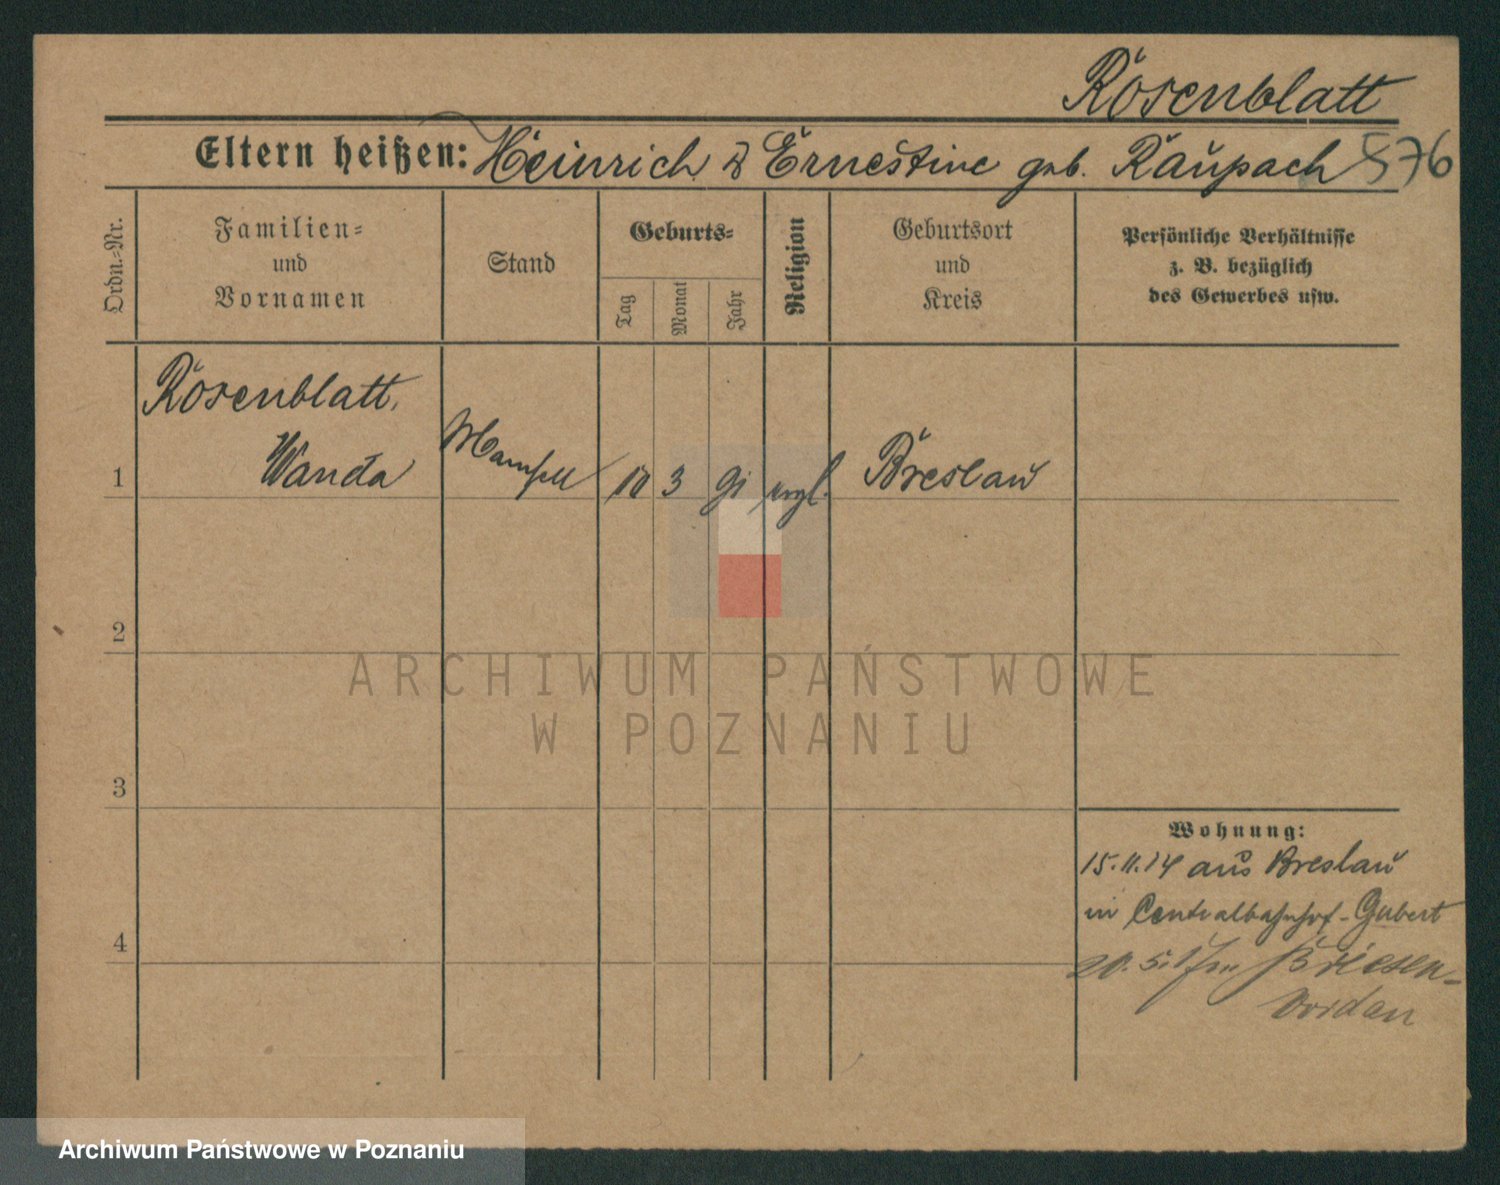 Rosenblatt
Eltern heißen: Heinrich & Ernestine geb. Raupach 576
Ordn.-Nr.
Familien-
und
Vornamen
Stand
Geburts-
Tag
Monat
Jahr
Religion
Geburtsort
und
Kreis
Persönliche Verhältnisse
z. B. bezüglich
des Gewerbes usw.
Rosenblatt,
1 Wanda Mamsell 10 3 91 evgl. Breslau
2
3
4
Wohnung:
15.11.14 aus Breslau
in Centralbahnhof-Gubert
20.5. Briesen-
ARCHIWUM PAŃSTWOWE
W POZNANIU
Archiwum Państwowe w Poznaniu